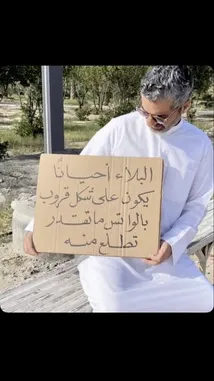 البلاء أحيانًا
يكون على شكل قروب
بالواتس ما تقدر
تطلع منه